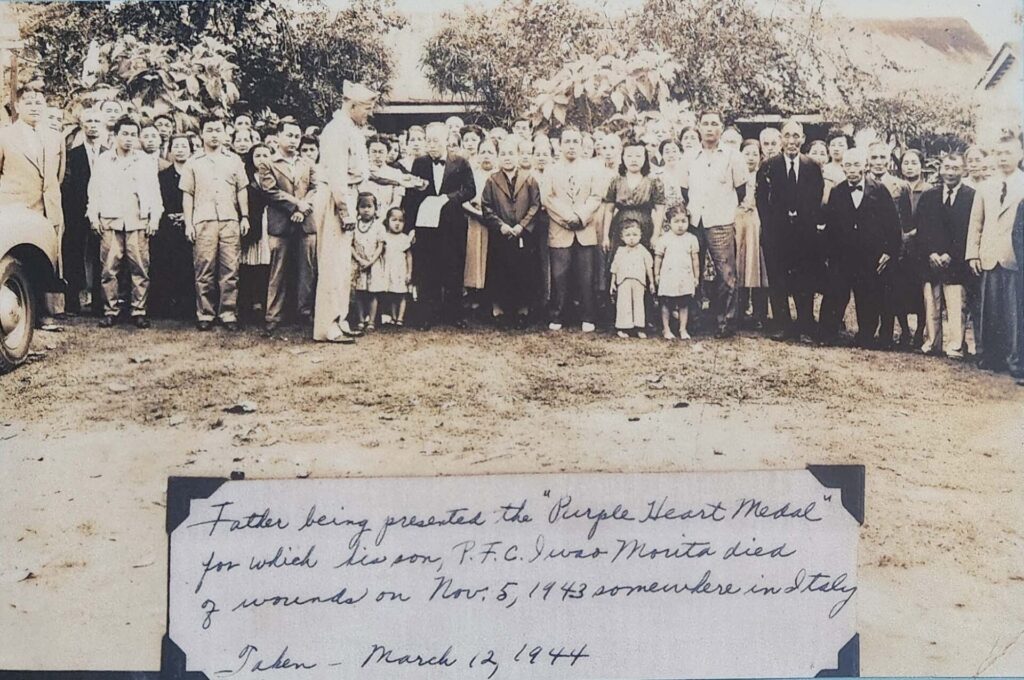 Father being presented the "Purple Heart Medal"
for which his son, P.F.C. Iwao Morita died
of wounds on Nov. 5, 1943 somewhere in Italy
Taken - March 12, 1944